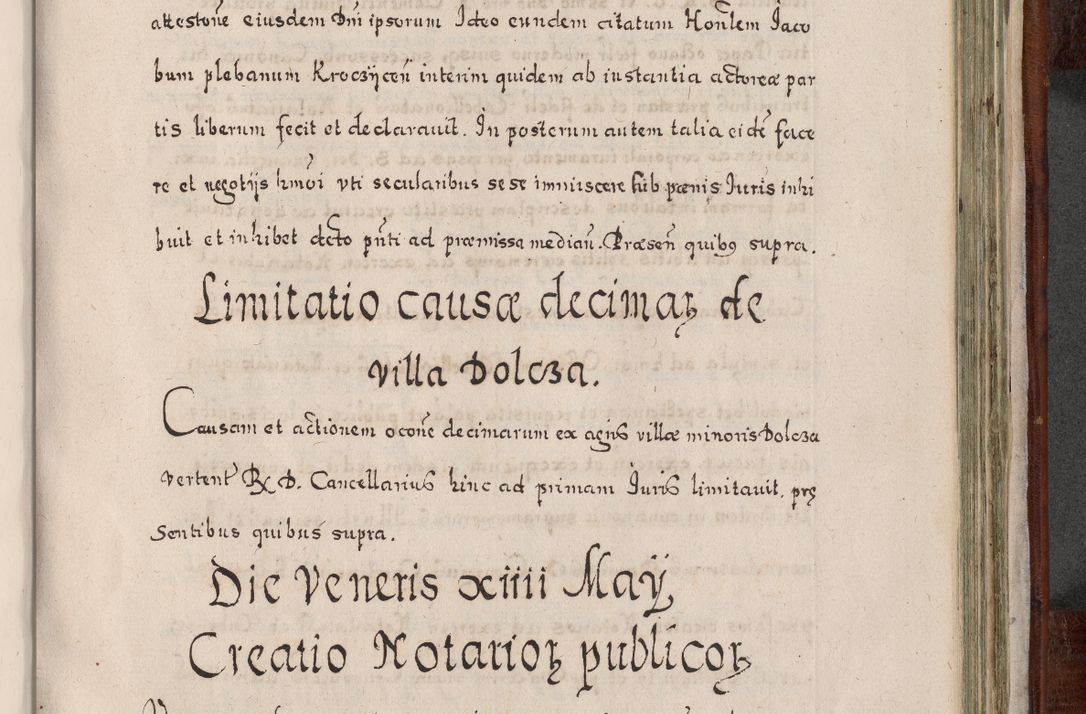 attestone eiusdem Dni ipsorum Ideo eundem citatum Honlem Jaco
bum plebanum Kroczÿcen interim quidem ab instantia actoreæ par
tis liberum fecit et declarauit. In posterum autem talia eide face
re et negotijs hmoi vti secularibus sese immiscere sub pœnis Iuris inhi
buit et inhibet dcto pnti ad præmissa median. Præsen quibus supra.
Limitatio causæ decimaꝝ de
villa Dolcza.
Causam et actionem occone decimarum ex agris villæ minoris Dolcza
vertent R. D. Cancellarius hinc ad primam Iuris limitauit, prę
sentibus quibus supra.
Die Veneris xiiii Maÿ
Creatio Notarioꝝ publicoꝝ